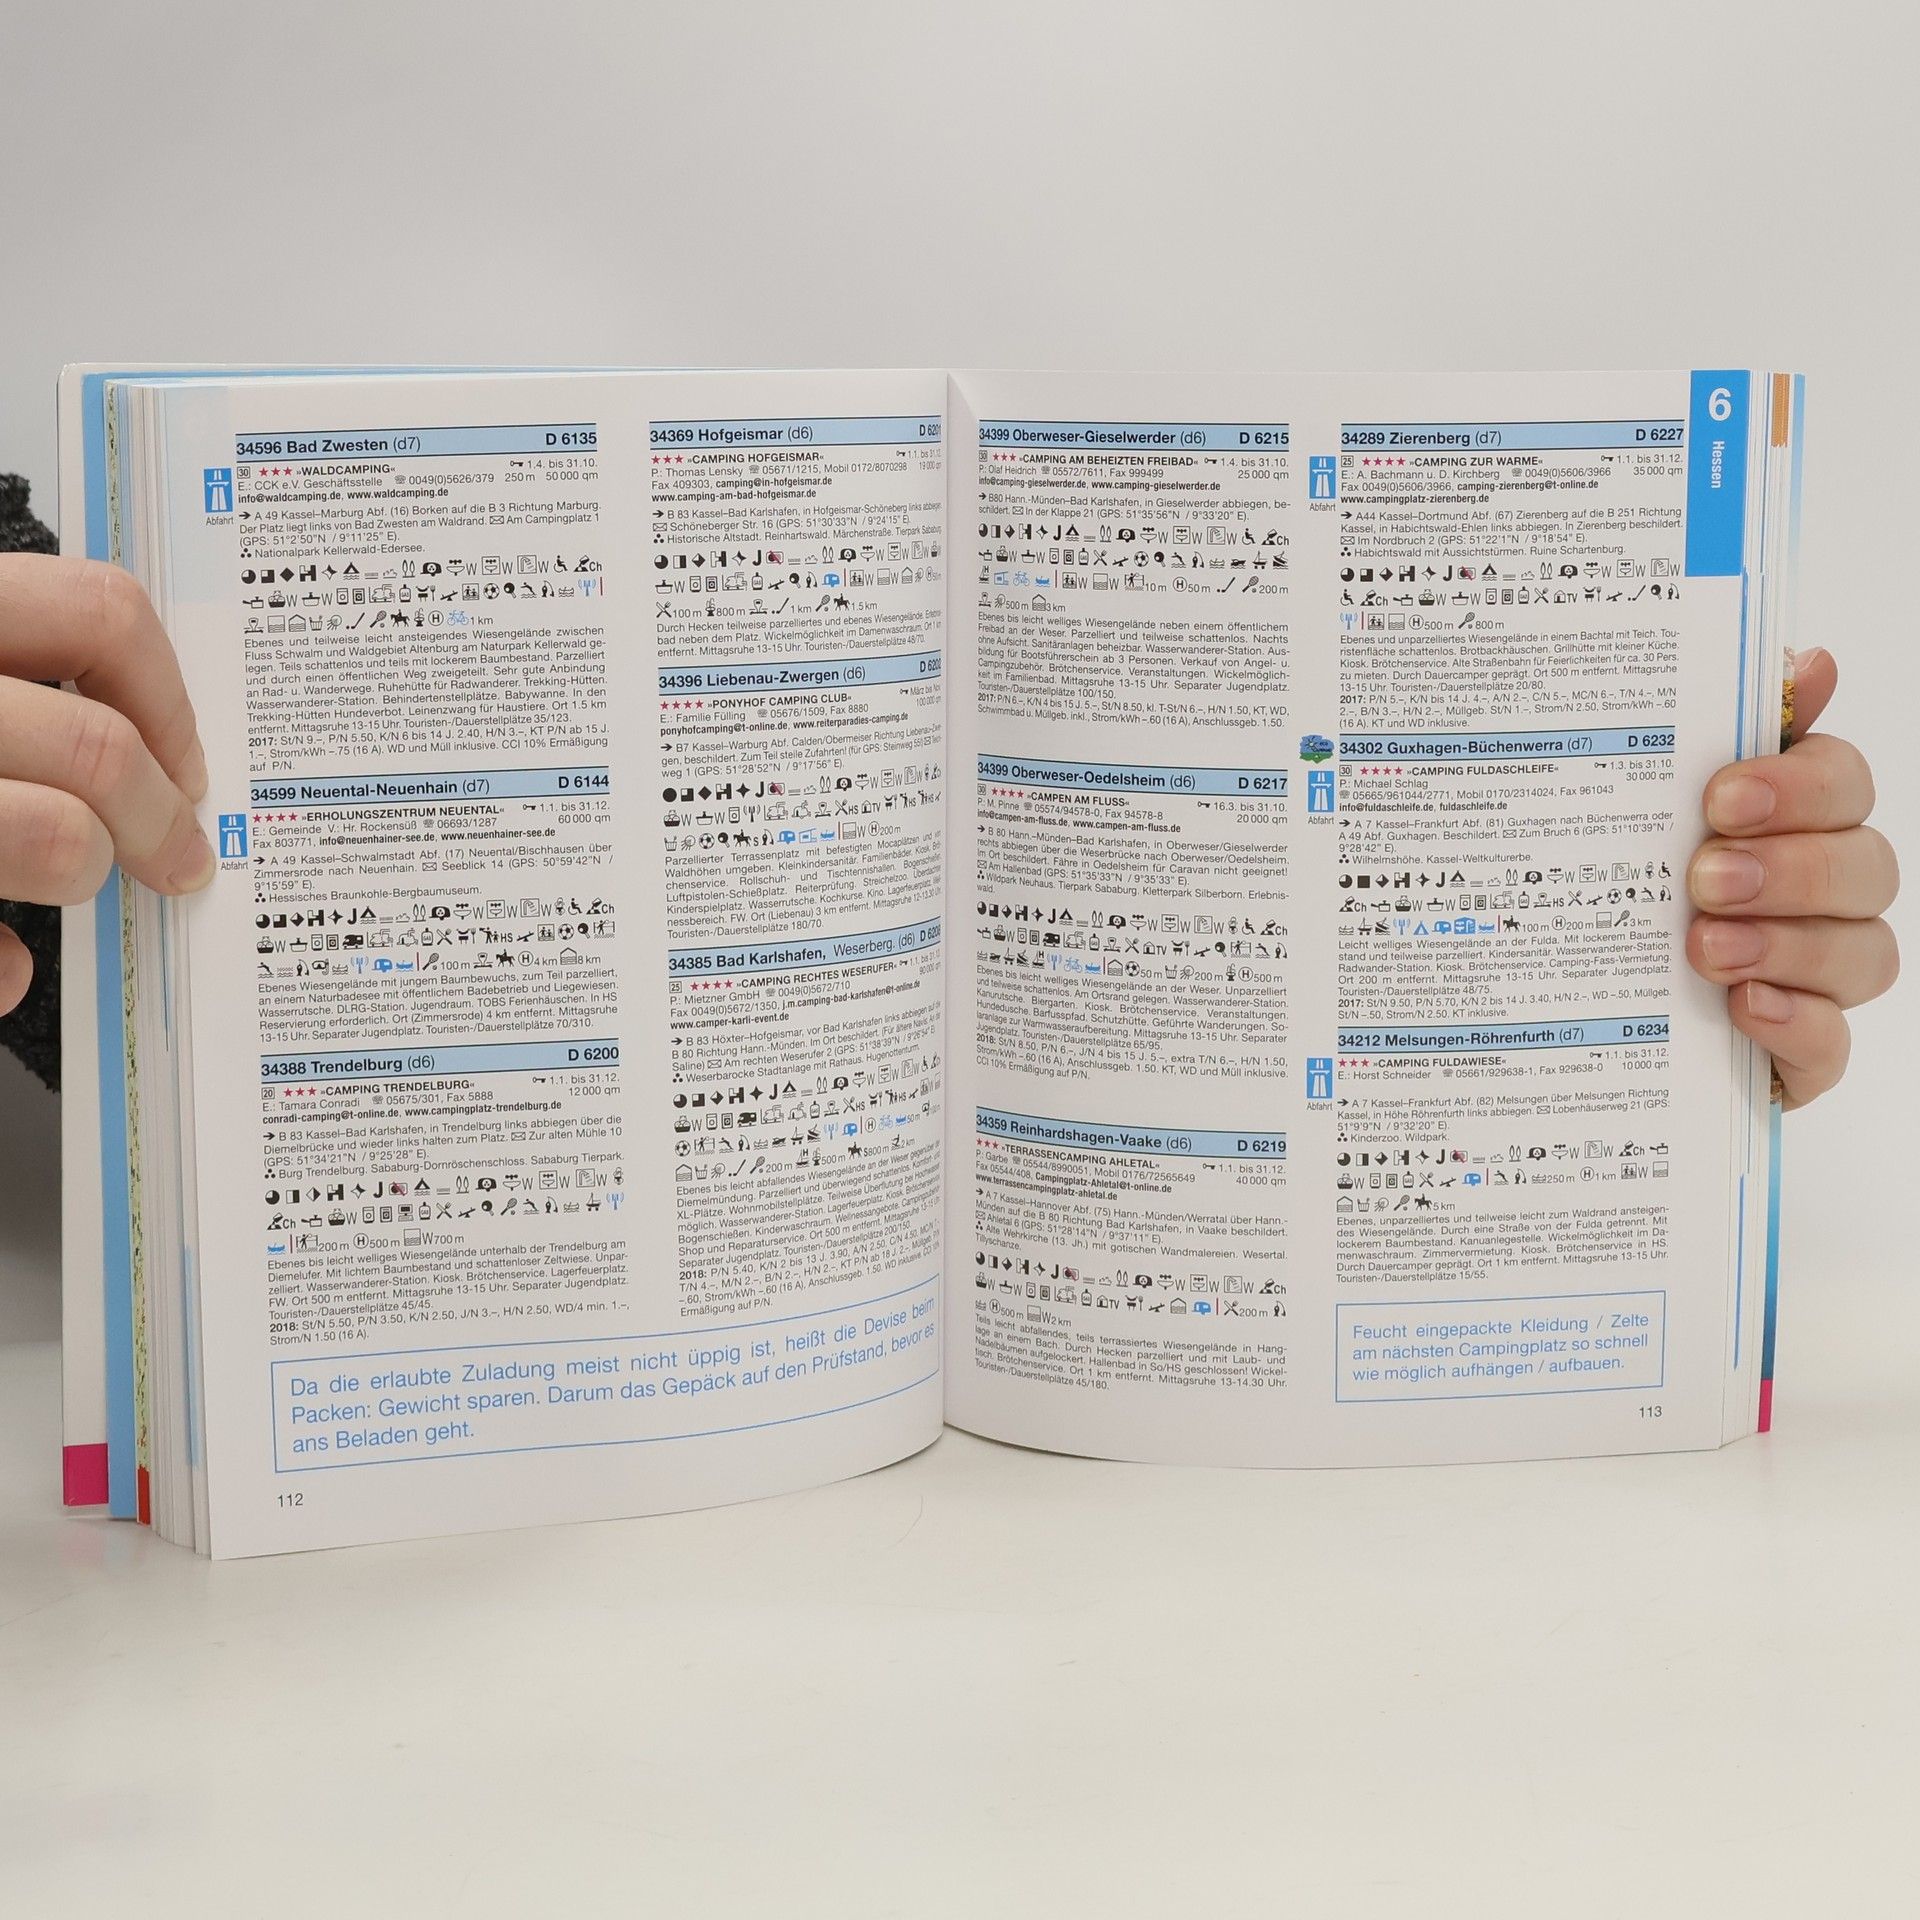 34596 Bad Zwesten (d7) D 6135
30 ★★★ »WALDCAMPING« 1.4. bis 31.10.
E.: CCK e.V. Geschäftsstelle ☏ 0049(0)5626/379 250 m 50 000 qm
info@waldcamping.de, www.waldcamping.de
Abfahrt
➔ A 49 Kassel–Marburg Abf. (16) Borken auf die B 3 Richtung Marburg.
Der Platz liegt links von Bad Zwesten am Waldrand. ✉ Am Campingplatz 1
(GPS: 51°2'50"N / 9°11'25" E).
Nationalpark Kellerwald-Edersee.
1 km
Ebenes und teilweise leicht ansteigendes Wiesengelände zwischen
Fluss Schwalm und Waldgebiet Altenburg am Naturpark Kellerwald ge-
legen. Teils schattenlos und teils mit lockerem Baumbestand. Parzelliert
und durch einen öffentlichen Weg zweigeteilt. Sehr gute Anbindung
an Rad- u. Wanderwege. Ruhehütte für Radwanderer. Trekking-Hütten.
Wasserwanderer-Station. Behindertenstellplätze. Babywanne. In den
Trekking-Hütten Hundeverbot. Leinenzwang für Haustiere. Ort 1.5 km
entfernt. Mittagsruhe 13-15 Uhr. Touristen-/Dauerstellplätze 35/123.
2017: St/N 9.–, P/N 5.50, K/N 6 bis 14 J. 2.40, H/N 3.–, KT P/N ab 15 J.
1.–, Strom/kWh –.75 (16 A). WD und Müll inklusive. CCI 10% Ermäßigung
auf P/N.
34599 Neuental-Neuenhain (d7) D 6144
★★★★ »ERHOLUNGSZENTRUM NEUENTAL« 1.1. bis 31.12.
E.: Gemeinde V.: Hr. Rockensüß ☏ 06693/1287 60 000 qm
Fax 803771, info@neuenhainer-see.de, www.neuenhainer-see.de
Abfahrt
➔ A 49 Kassel–Schwalmstadt Abf. (17) Neuental/Bischhausen über
Zimmersrode nach Neuenhain. ✉ Seeblick 14 (GPS: 50°59'42"N /
9°15'59" E).
Hessisches Braunkohle-Bergbaumuseum.
100 m 4 km 8 km
Ebenes Wiesengelände mit jungem Baumbewuchs, zum Teil parzelliert,
an einem Naturbadesee mit öffentlichem Badebetrieb und Liegewiesen.
Wasserrutsche. DLRG-Station. Jugendraum. TOBS Ferienhäuschen. In HS
Reservierung erforderlich. Ort (Zimmersrode) 4 km entfernt. Mittagsruhe
13-15 Uhr. Separater Jugendplatz. Touristen-/Dauerstellplätze 70/310.
34388 Trendelburg (d6) D 6200
20 ★★★ »CAMPING TRENDELBURG« 1.1. bis 31.12.
E.: Tamara Conradi ☏ 05675/301, Fax 5888 12 000 qm
conradi-camping@t-online.de, www.campingplatz-trendelburg.de
➔ B 83 Kassel–Bad Karlshafen, in Trendelburg links abbiegen über die
Diemelbrücke und wieder links halten zum Platz. ✉ Zur alten Mühle 10
(GPS: 51°34'21"N / 9°25'28" E).
Burg Trendelburg. Sababurg-Dornröschenschloss. Sababurg Tierpark.
200 m 500 m W700 m
Ebenes bis leicht welliges Wiesengelände unterhalb der Trendelburg am
Diemelufer. Mit lichtem Baumbestand und schattenloser Zeltwiese. Unpar-
zelliert. Wasserwanderer-Station. Kiosk. Brötchenservice. Lagerfeuerplatz.
FW. Ort 500 m entfernt. Mittagsruhe 13-15 Uhr. Separater Jugendplatz.
Touristen-/Dauerstellplätze 45/45.
2018: St/N 5.50, P/N 3.50, K/N 2.50, J/N 3.–, H/N 2.50, WD/4 min. 1.–,
Strom/N 1.50 (16 A).
34369 Hofgeismar (d6) D 6201
★★★ »CAMPING HOFGEISMAR« 1.1. bis 31.12.
P.: Thomas Lensky ☏ 05671/1215, Mobil 0172/8070298 19 000 qm
Fax 409303, camping@in-hofgeismar.de
www.camping-am-bad-hofgeismar.de
➔ B 83 Kassel–Bad Karlshafen, in Hofgeismar-Schöneberg links abbiegen.
✉ Schöneberger Str. 16 (GPS: 51°30'33"N / 9°24'15" E).
Historische Altstadt. Reinhartswald. Märchenstraße. Tierpark Sababurg.
100 m 800 m 1 km 1.5 km
Durch Hecken teilweise parzelliertes und ebenes Wiesengelände.
bad neben dem Platz. Wickelmöglichkeit im Damenwaschraum. Ort 1 km
entfernt. Mittagsruhe 13-15 Uhr. Touristen-/Dauerstellplätze 48/70.
34396 Liebenau-Zwergen (d6) D 6202
★★★★ »PONYHOF CAMPING CLUB« März bis Nov.
E.: Familie Fülling ☏ 05676/1509, Fax 8880 100 000 qm
ponyhofcamping@t-online.de, www.reiterparadies-camping.de
➔ B7 Kassel–Warburg Abf. Calden/Obermeiser Richtung Liebenau-Zwer-
gen, beschildert. Zum Teil steile Zufahrten! (für GPS: Steinweg 55) ✉ Teich-
weg 1 (GPS: 51°28'52"N / 9°17'56" E).
200 m
Parzellierter Terrassenplatz mit befestigten Mocaplätzen und von
Waldhöhen umgeben. Kleinkindersanitär. Familienbäder. Kiosk. Bröt-
chenservice. Rollschuh- und Tischtennishallen. Bogenschießen.
Luftpistolen-Schießplatz. Reiterprüfung. Streichelzoo. Überdachter
Kinderspielplatz. Wasserrutsche. Kochkurse. Kino. Lagerfeuerplatz.
nessbereich. FW. Ort (Liebenau) 3 km entfernt. Mittagsruhe 12-13.30 Uhr.
Touristen-/Dauerstellplätze 180/70.
34385 Bad Karlshafen, Weserberg. (d6) D 6208
25 ★★★★ »CAMPING RECHTES WESERUFER« 1.1. bis 31.12.
P.: Mietzner GmbH ☏ 0049(0)5672/710 90 000 qm
Fax 0049(0)5672/1350, j.m.camping-bad-karlshafen@t-online.de
www.camper-karli-event.de
➔ B 83 Höxter–Hofgeismar, vor Bad Karlshafen links abbiegen auf die
B 80 Richtung Hann.-Münden. Im Ort beschildert. (Für ältere Navis: An der
Saline) ✉ Am rechten Weserufer 2 (GPS: 51°38'39"N / 9°26'54" E).
Weserbarocke Stadtanlage mit Rathaus. Hugenottenturm.
200 m 500 m 800 m 2 km
Ebenes bis leicht abfallendes Wiesengelände an der Weser gegenüber der
Diemelmündung. Parzelliert und überwiegend schattenlos. Komfort- und
XL-Plätze. Wohnmobilstellplätze. Teilweise Überflutung bei Hochwasser
möglich. Wasserwanderer-Station. Lagerfeuerplatz. Kiosk. Brötchenservice.
Bogenschießen. Kinderwaschraum. Wellnessangebote. Campingzubehör-
Shop und Reparaturservice. Ort 500 m entfernt. Mittagsruhe 13-15 Uhr.
Separater Jugendplatz. Touristen-/Dauerstellplätze 200/150.
2018: P/N 5.40, K/N 2 bis 13 J. 3.90, A/N 2.50, C/N 4.50,
T/N 4.–, M/N 2.–, B/N 2.–, H/N 2.–, KT P/N ab 18 J. 2.–, Müllgeb.
–.60, Strom/kWh –.60 (16 A), Anschlussgeb. 1.50. WD inklusive. CCI 10%
Ermäßigung auf P/N.
Da die erlaubte Zuladung meist nicht üppig ist, heißt die Devise beim
Packen: Gewicht sparen. Darum das Gepäck auf den Prüfstand, bevor es
ans Beladen geht.
112
34399 Oberweser-Gieselwerder (d6) D 6215
30 ★★★ »CAMPING AM BEHEIZTEN FREIBAD« 1.4. bis 31.10.
P.: Olaf Heidrich ☏ 05572/7611, Fax 999499 25 000 qm
info@camping-gieselwerder.de, www.camping-gieselwerder.de
➔ B80 Hann.-Münden–Bad Karlshafen, in Gieselwerder abbiegen, be-
schildert. ✉ In der Klappe 21 (GPS: 51°35'56"N / 9°33'20" E).
10 m 50 m 200 m
500 m 3 km
Ebenes bis leicht welliges Wiesengelände neben einem öffentlichem
Freibad an der Weser. Parzelliert und teilweise schattenlos. Nachts
ohne Aufsicht. Sanitäranlagen beheizbar. Wasserwanderer-Station. Aus-
bildung für Bootsführerschein ab 3 Personen. Verkauf von Angel- u.
Campingzubehör. Brötchenservice. Veranstaltungen. Wickelmöglich-
keit im Familienbad. Mittagsruhe 13-15 Uhr. Separater Jugendplatz.
Touristen-/Dauerstellplätze 100/150.
2017: P/N 6.–, K/N 4 bis 15 J. 5.–, St/N 8.50, kl. T-St/N 6.–, H/N 1.50, KT, WD,
Schwimmbad u. Müllgeb. inkl., Strom/kWh –.60 (16 A), Anschlussgeb. 1.50.
34399 Oberweser-Oedelsheim (d6) D 6217
30 ★★★★ »CAMPEN AM FLUSS« 16.3. bis 31.10.
P.: M. Pinne ☏ 05574/94578-0, Fax 94578-8 20 000 qm
info@campen-am-fluss.de, www.campen-am-fluss.de
➔ B 80 Hann.-Münden–Bad Karlshafen, in Oberweser/Gieselwerder
rechts abbiegen über die Weserbrücke nach Oberweser/Oedelsheim.
Im Ort beschildert. Fähre in Oedelsheim für Caravan nicht geeignet!
✉ Am Hallenbad (GPS: 51°35'33"N / 9°35'33" E).
Wildpark Neuhaus. Tierpark Sababurg. Kletterpark Silberborn. Erlebnis-
wald.
50 m 200 m 500 m
Ebenes bis leicht welliges Wiesengelände an der Weser. Unparzelliert
und teilweise schattenlos. Am Ortsrand gelegen. Wasserwanderer-Station.
Kanurutsche. Biergarten. Kiosk. Brötchenservice. Veranstaltungen.
Hundedusche. Barfusspfad. Schutzhütte. Geführte Wanderungen. So-
laranlage zur Warmwasseraufbereitung. Mittagsruhe 13-15 Uhr. Separater
Jugendplatz. Touristen-/Dauerstellplätze 65/95.
2018: St/N 8.50, P/N 6.–, J/N 4 bis 15 J. 5.–, extra T/N 6.–, H/N 1.50,
Strom/kWh –.60 (16 A), Anschlussgeb. 1.50. KT, WD und Müll inklusive.
CCI 10% Ermäßigung auf P/N.
34359 Reinhardshagen-Vaake (d6) D 6219
★★★ »TERRASSENCAMPING AHLETAL« 1.1. bis 31.12.
P.: Garbe ☏ 05544/8990051, Mobil 0176/72565649 40 000 qm
Fax 05544/408, Campingplatz-Ahletal@t-online.de
www.terrassencampingplatz-ahletal.de
➔ A 7 Kassel–Hannover Abf. (75) Hann.-Münden/Werratal über Hann.-
Münden auf die B 80 Richtung Bad Karlshafen, in Vaake beschildert.
✉ Ahletal 6 (GPS: 51°28'14"N / 9°37'11" E).
Alte Wehrkirche (13. Jh.) mit gotischen Wandmalereien. Wesertal.
Tillyschanze.
200 m
500 m W2 km
Teils leicht abfallendes, teils terrassiertes Wiesengelände in Hang-
lage an einem Bach. Durch Hecken parzelliert und mit Laub- und
Nadelbäumen aufgelockert. Hallenbad in So/HS geschlossen! Wickel-
tisch. Brötchenservice. Ort 1 km entfernt. Mittagsruhe 13-14.30 Uhr.
Touristen-/Dauerstellplätze 45/180.
34289 Zierenberg (d7) D 6227
25 ★★★★ »CAMPING ZUR WARME« 1.1. bis 31.12.
E.: A. Bachmann u. D. Kirchberg ☏ 0049(0)5606/3966 35 000 qm
Fax 0049(0)5606/3966, camping-zierenberg@t-online.de
www.campingplatz-zierenberg.de
Abfahrt
➔ A44 Kassel–Dortmund Abf. (67) Zierenberg auf die B 251 Richtung
Kassel, in Habichtswald-Ehlen links abbiegen. In Zierenberg beschildert.
✉ Im Nordbruch 2 (GPS: 51°22'1"N / 9°18'54" E).
Habichtswald mit Aussichtstürmen. Ruine Schartenburg.
500 m 800 m
Ebenes und unparzelliertes Wiesengelände in einem Bachtal mit Teich. Tou-
ristenfläche schattenlos. Brotbackhäuschen. Grillhütte mit kleiner Küche.
Kiosk. Brötchenservice. Alte Straßenbahn für Feierlichkeiten für ca. 30 Pers.
zu mieten. Durch Dauercamper geprägt. Ort 500 m entfernt. Mittagsruhe
13-15 Uhr. Touristen-/Dauerstellplätze 20/80.
2017: P/N 5.–, K/N bis 14 J. 4.–, A/N 2.–, C/N 5.–, MC/N 6.–, T/N 4.–, M/N
2.–, B/N 3.–, H/N 2.–, Müllgeb. St/N 1.–, Strom/N 2.50, Strom/kWh –.60
(16 A). KT und WD inklusive.
34302 Guxhagen-Büchenwerra (d7) D 6232
30 ★★★★ »CAMPING FULDASCHLEIFE« 1.3. bis 31.10.
P.: Michael Schlag 30 000 qm
☏ 05665/961044/2771, Mobil 0170/2314024, Fax 961043
info@fuldaschleife.de, fuldaschleife.de
Abfahrt
➔ A 7 Kassel–Frankfurt Abf. (81) Guxhagen nach Büchenwerra oder
A 49 Abf. Guxhagen. Beschildert. ✉ Zum Bruch 6 (GPS: 51°10'39"N /
9°28'42" E).
Wilhelmshöhe. Kassel-Weltkulturerbe.
100 m 200 m 3 km
Leicht welliges Wiesengelände an der Fulda. Mit lockerem Baumbe-
stand und teilweise parzelliert. Kindersanitär. Wasserwanderer-Station.
Radwander-Station. Kiosk. Brötchenservice. Camping-Fass-Vermietung.
Ort 200 m entfernt. Mittagsruhe 13-15 Uhr. Separater Jugendplatz.
Touristen-/Dauerstellplätze 48/75.
2017: St/N 9.50, P/N 5.70, K/N 2 bis 14 J. 3.40, H/N 2.–, WD –.50, Müllgeb.
St/N –.50, Strom/N 2.50. KT inklusive.
34212 Melsungen-Röhrenfurth (d7) D 6234
★★★ »CAMPING FULDAWIESE« 1.1. bis 31.12.
E.: Horst Schneider ☏ 05661/929638-1, Fax 929638-0 10 000 qm
Abfahrt
➔ A 7 Kassel–Frankfurt Abf. (82) Melsungen über Melsungen Richtung
Kassel, in Höhe Röhrenfurth links abbiegen. ✉ Lobenhäuserweg 21 (GPS:
51°9'9"N / 9°32'20" E).
Kinderzoo. Wildpark.
250 m 1 km
5 km
Ebenes, unparzelliertes und teilweise leicht zum Waldrand ansteigen-
des Wiesengelände. Durch eine Straße von der Fulda getrennt. Mit
lockerem Baumbestand. Kanuanlegestelle. Wickelmöglichkeit im Da-
menwaschraum. Zimmervermietung. Kiosk. Brötchenservice in HS.
Durch Dauercamper geprägt. Ort 1 km entfernt. Mittagsruhe 13-15 Uhr.
Touristen-/Dauerstellplätze 15/55.
Feucht eingepackte Kleidung / Zelte
am nächsten Campingplatz so schnell
wie möglich aufhängen / aufbauen.
113
6
Hessen